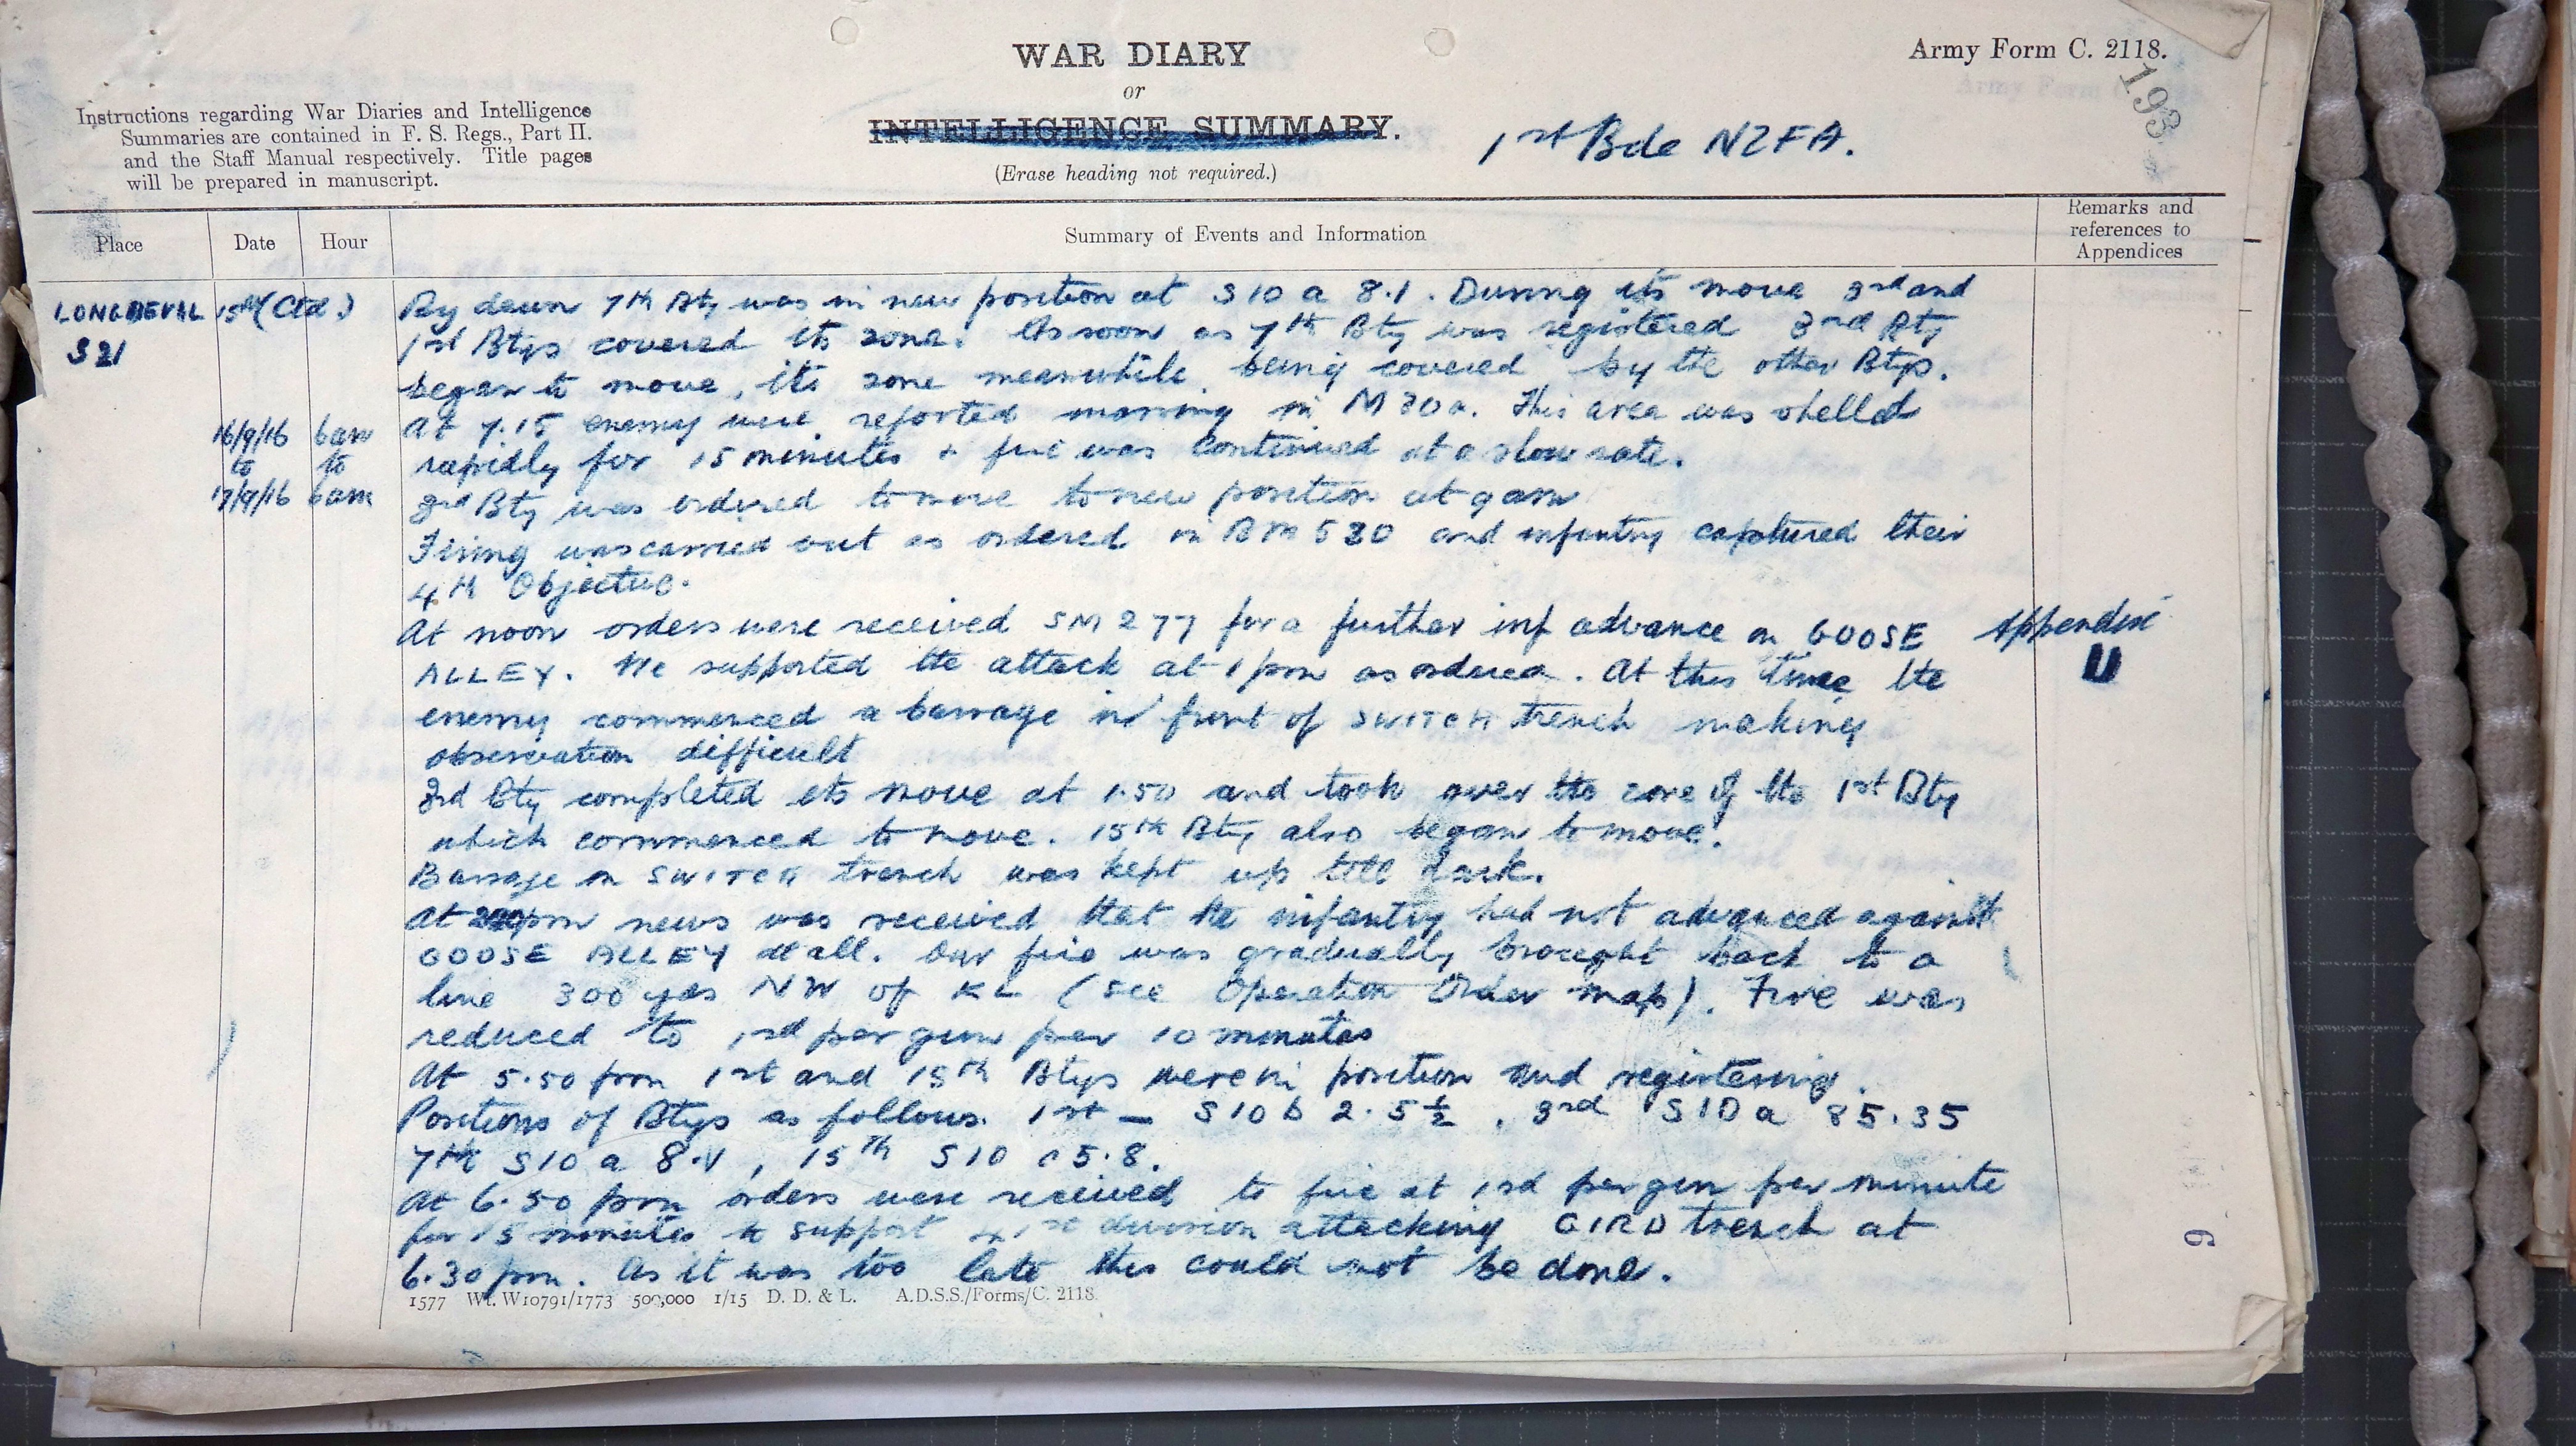 WAR DIARY
or
INTELLIGENCE SUMMARY.
(Erase heading not required.)
Army Form C. 2118.
193
Instructions regarding War Diaries and Intelligence
Summaries are contained in F. S. Regs., Part II.
and the Staff Manual respectively. Title pages
will be prepared in manuscript.
1st Bde NZFA.
Place
Date
Hour
Summary of Events and Information
Remarks and
references to
Appendices
LONGUEVAL 15th (Ctd.)
S 21
By dawn 7th Bty was in new position at S10 a 8.1. During its move 3rd and
1st Btys covered its zone. As soon as 7th Bty was registered 3rd Bty
began to move, its zone meanwhile being covered by the other Btys.
16/9/16 6am
to to
17/9/16 6am
At 7.15 enemy were reported massing in M30a. This area was shelled
rapidly for 15 minutes + fire was continued at a slow rate.
3rd Bty was ordered to move to new position at 9am
Firing was carried out as ordered in BM 520 and infantry captured their
4th Objective.
At noon orders were received SM 277 for a further inf advance on GOOSE
Appendix
U
ALLEY. We supported the attack at 1pm as ordered. At this time the
enemy commenced a barrage in front of SWITCH trench making
observation difficult
3rd Bty completed its move at 1.50 and took over the zone of the 1st Bty
which commenced to move. 15th Bty also began to move.
Barrage on SWITCH trench was kept up till dark.
At pm news was received that the infantry had not advanced against
GOOSE ALLEY at all. Our fire was gradually brought back to a
line 300 yds NW of KL (see Operation Order map). Fire was
reduced to 1rd per gun per 10 minutes
At 5.50 pm 1st and 15th Btys were in position and registering.
Positions of Btys as follows. 1st — S10 b 2.5½, 3rd S10a 85.35
7th S10 a 8.1, 15th S10 c 5.8.
At 6.50 pm orders were received to fire at 1rd per gun per minute
for 15 minutes to support 41st division attacking GIRD trench at
6.30 pm. As it was too late this could not be done.
1577 Wt. W10791/1773 500,000 1/15 D. D. & L. A.D.S.S./Forms/C. 2118.
6